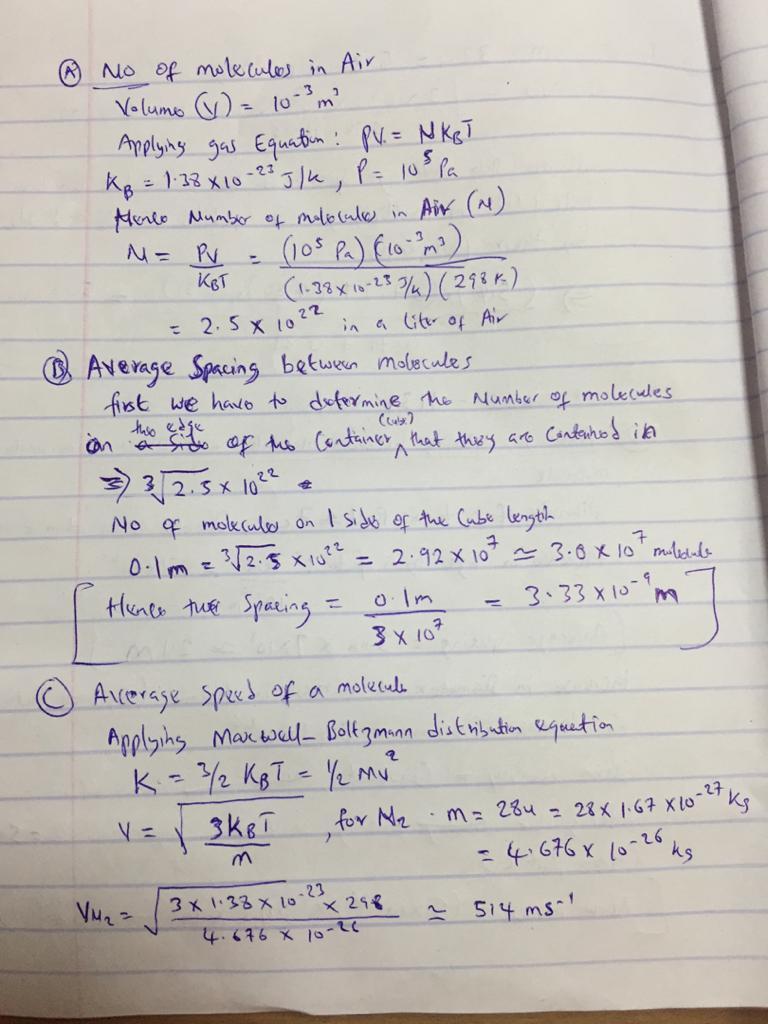 (A) No of molecules in Air
Volume (V) = 10⁻³ m³
Applying gas Equation: PV = NK_BT
K_B = 1.38 × 10⁻²³ J/K, P = 10⁵ Pa
Hence Number of molecules in Air (N)
N = PV/K_BT = (10⁵ Pa)(10⁻³ m³)/(1.38 × 10⁻²³ J/K)(298 K)
= 2.5 × 10²² in a liter of Air
(B) Average Spacing between molecules
first we have to determine the Number of molecules
on the edge of the Container (cube) that they are Contained in
⇒ ³√2.5 × 10²²
No of molecules on 1 side of the Cube length
0.1m = ³√2.5 × 10²² = 2.92 × 10⁷ ≃ 3.0 × 10⁷ molecule
[Hence the Spacing = 0.1m/3 × 10⁷ = 3.33 × 10⁻⁹ m]
(C) Average speed of a molecule
Applying Maxwell-Boltzmann distribution equation
K = 3/2 K_BT = 1/2 MV²
V = √3K_BT/m, for N₂ . m = 28u = 28 × 1.67 × 10⁻²⁷ Kg
= 4.676 × 10⁻²⁶ kg
V_N₂ = √3 × 1.38 × 10⁻²³ × 298/4.676 × 10⁻²⁶ ≃ 514 ms⁻¹